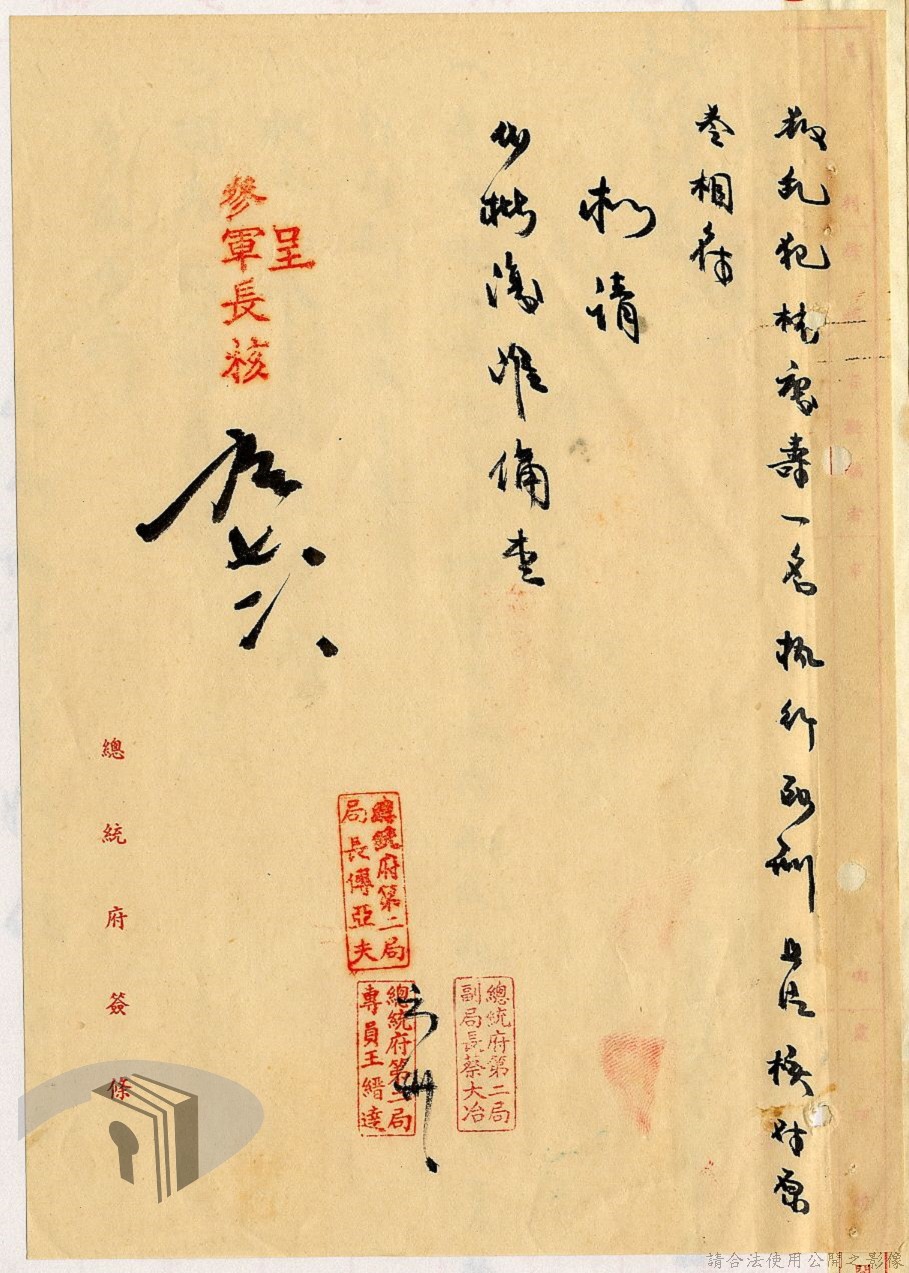 叛乱犯林壽一名执行死刑核对原
卷相符
拟請
批復准備查
呈
參軍長核
總統府第二局
副局長蔡大冶
總統府第二局
局長傅亞夫
總統府第二局
專員王縉達
總統府簽條
請合法使用公開之影像